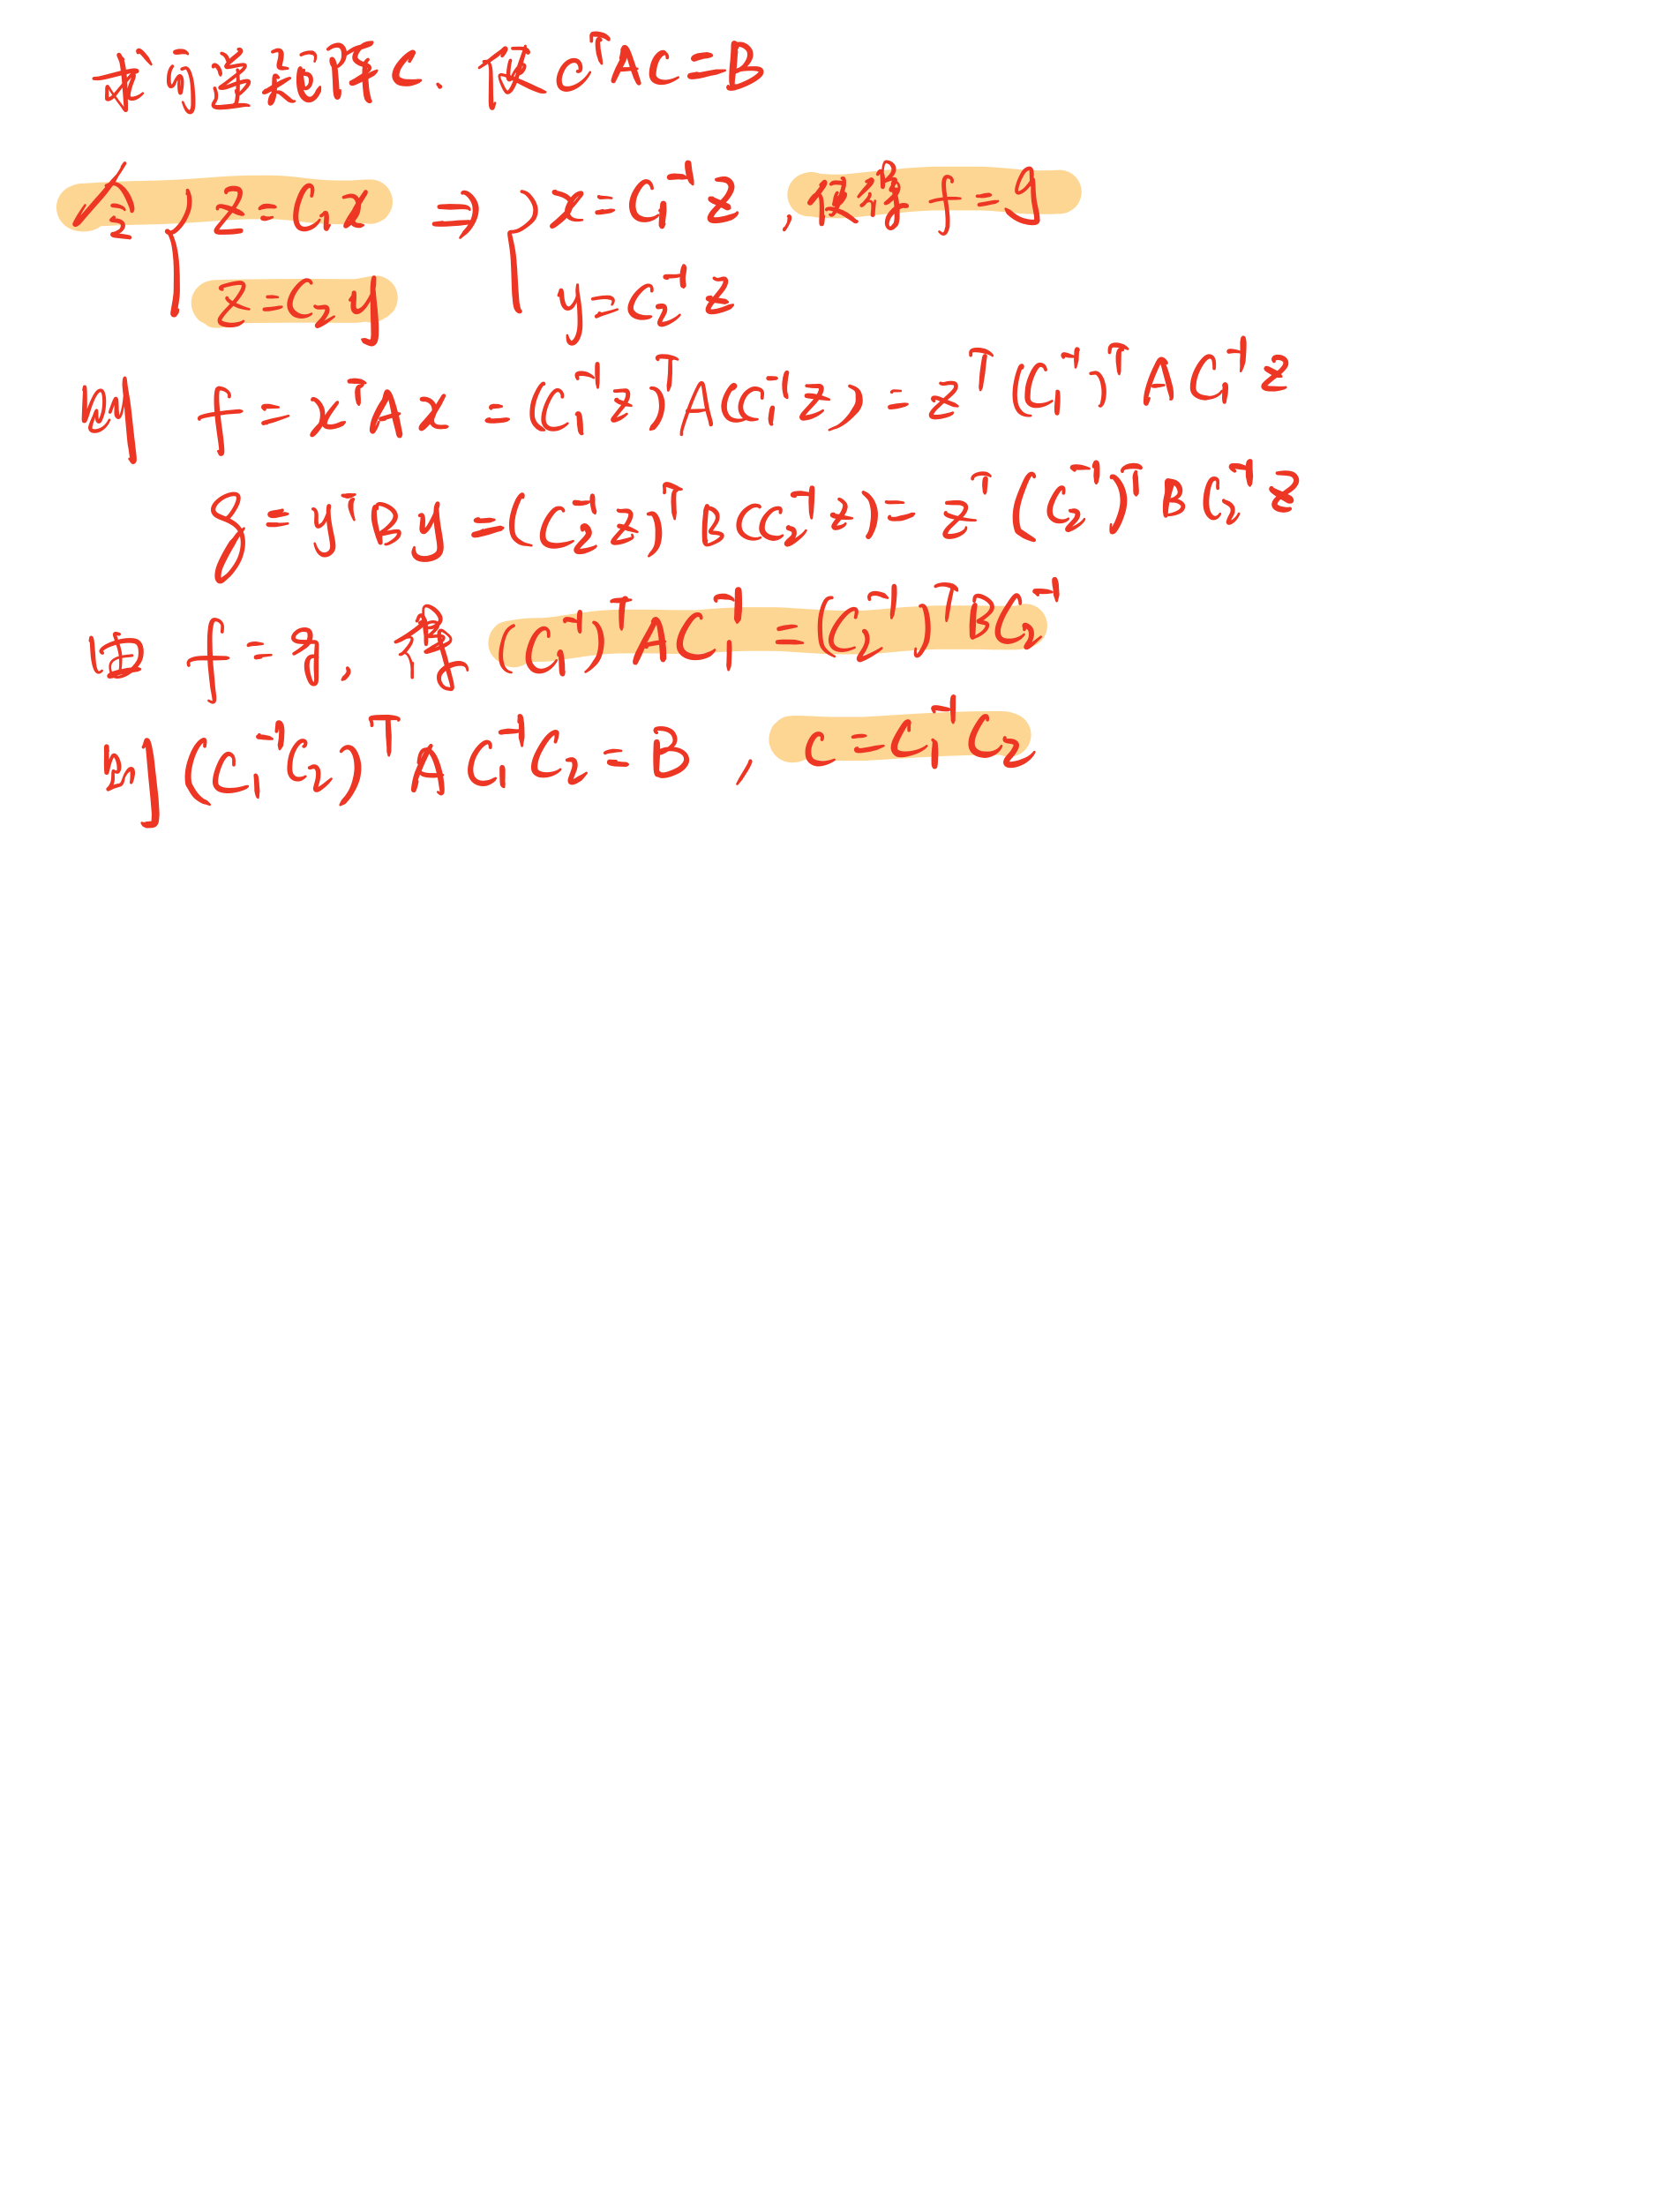 求可逆矩阵C. 使 CᵀAC=B
令 { z=C₁x ⇒ { x=C₁⁻¹z , 使得 f=g
z=C₂y y=C₂⁻¹z
则 f=xᵀAx=(C₁⁻¹z)ᵀA(C₁⁻¹z)=zᵀ(C₁⁻¹)ᵀAC₁⁻¹z
g=yᵀBy=(C₂⁻¹z)ᵀB(C₂⁻¹z)=zᵀ(C₂⁻¹)ᵀBC₂⁻¹z
由 f=g, 得 (C₁⁻¹)ᵀAC₁⁻¹=(C₂⁻¹)ᵀBC₂⁻¹
则(C₁⁻¹C₂)ᵀAC₁⁻¹C₂=B , C=C₁⁻¹C₂